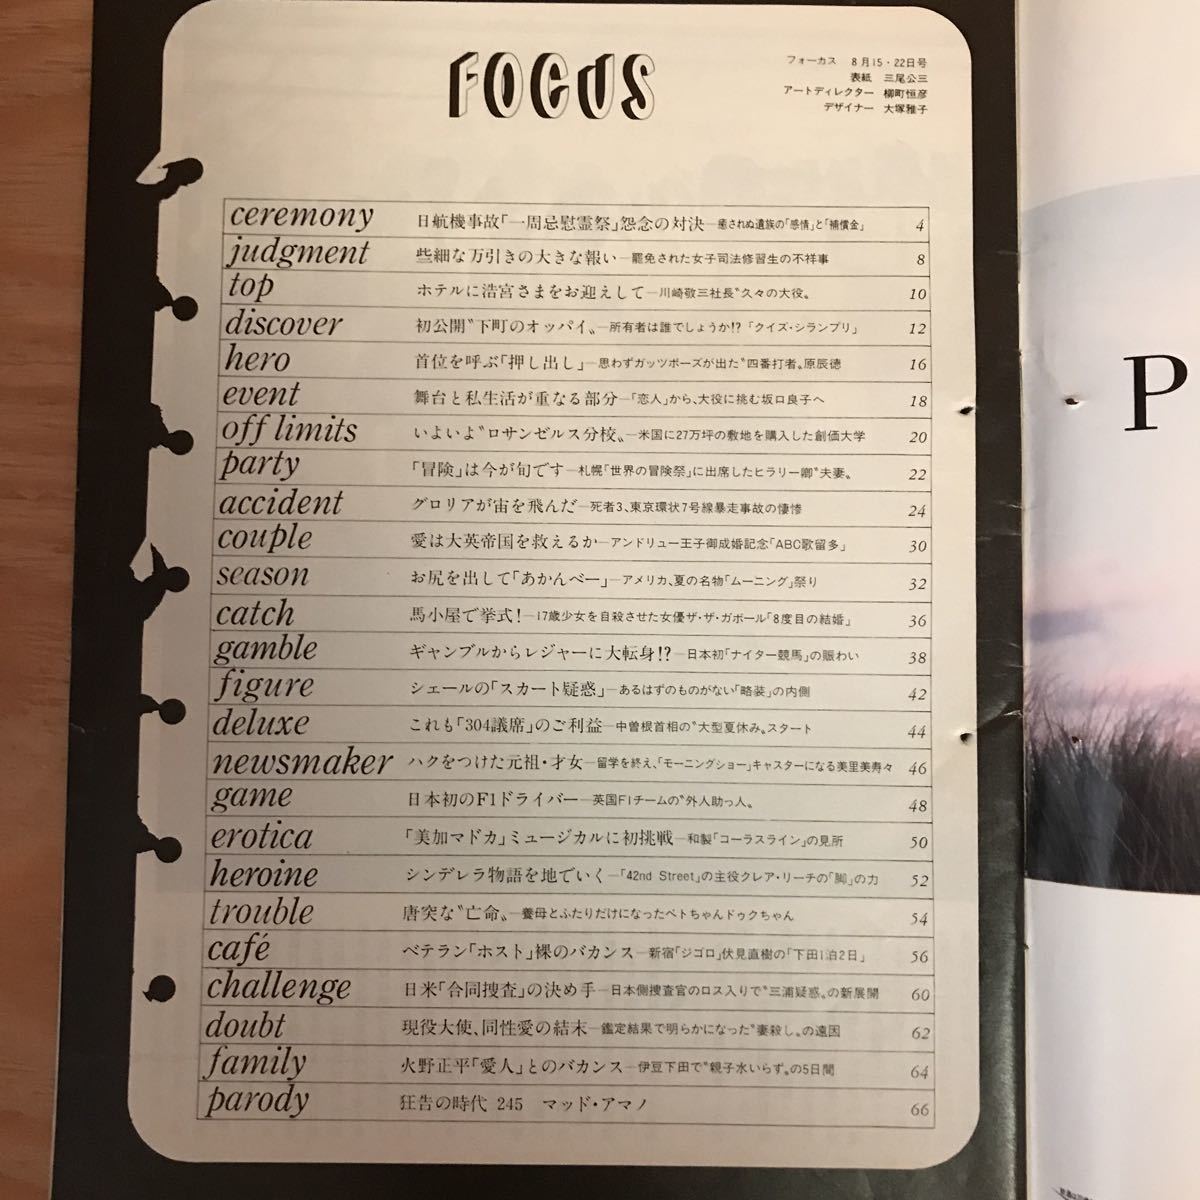 FOCUS
フォーカス 8月15・22日号
表紙 三尾公三
アートディレクター 柳町恒彦
デザイナー 大塚雅子
ceremony 日航機事故「一周忌慰霊祭」怨念の対決―癒されぬ遺族の「感情」と「補償金」 4
judgment 些細な万引きの大きな報い―罷免された女子司法修習生の不祥事 8
top ホテルに浩宮さまをお迎えして―川崎敬三社長〝久々の大役〟 10
discover 初公開〝下町のオッパイ〟―所有者は誰でしょうか!?「クイズ・シランプリ」 12
hero 首位を呼ぶ「押し出し」―思わずガッツポーズが出た〝四番打者〟原辰徳 16
event 舞台と私生活が重なる部分―「恋人」から、大役に挑む坂口良子へ 18
off limits いよいよ〝ロサンゼルス分校〟―米国に27万坪の敷地を購入した創価大学 20
party 「冒険」は今が旬です―札幌「世界の冒険祭」に出席したヒラリー卿〝夫妻〟 22
accident グロリアが宙を飛んだ―死者3、東京環状7号線暴走事故の悽惨 24
couple 愛は大英帝国を救えるか―アンドリュー王子御成婚記念「ABC歌留多」 30
season お尻を出して「あかんべー」―アメリカ、夏の名物「ムーニング」祭り 32
catch 馬小屋で挙式!―17歳少女を自殺させた女優ザ・ザ・ガボール「8度目の結婚」 36
gamble ギャンブルからレジャーに大転身!?―日本初「ナイター競馬」の賑わい 38
figure シェールの「スカート疑惑」―あるはずのものがない「略装」の内側 42
deluxe これも「304議席」のご利益―中曽根首相の〝大型夏休み〟スタート 44
newsmaker ハクをつけた元祖・才女―留学を終え、「モーニングショー」キャスターになる美里美寿々 46
game 日本初のF1ドライバー―英国F1チームの〝外人助っ人〟 48
erotica 「美加マドカ」ミュージカルに初挑戦―和製「コーラスライン」の見所 50
heroine シンデレラ物語を地でいく―「42nd Street」の主役クレア・リーチの「脚」の力 52
trouble 唐突な〝亡命〟―養母とふたりだけになったベトちゃんドゥクちゃん 54
café ベテラン「ホスト」裸のバカンス―新宿「ジゴロ」伏見直樹の「下田1泊2日」 56
challenge 日米「合同捜査」の決め手―日本側捜査官のロス入りで〝三浦疑惑〟の新展開 60
doubt 現役大使、同性愛の結末―鑑定結果で明らかになった〝妻殺し〟の遠因 62
family 火野正平「愛人」とのバカンス―伊豆下田で〝親子水いらず〟の5日間 64
parody 狂告の時代 245 マッド・アマノ 66
P